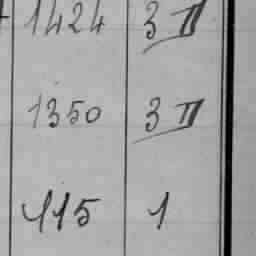 1424 3 II
1350 3 II
415 1